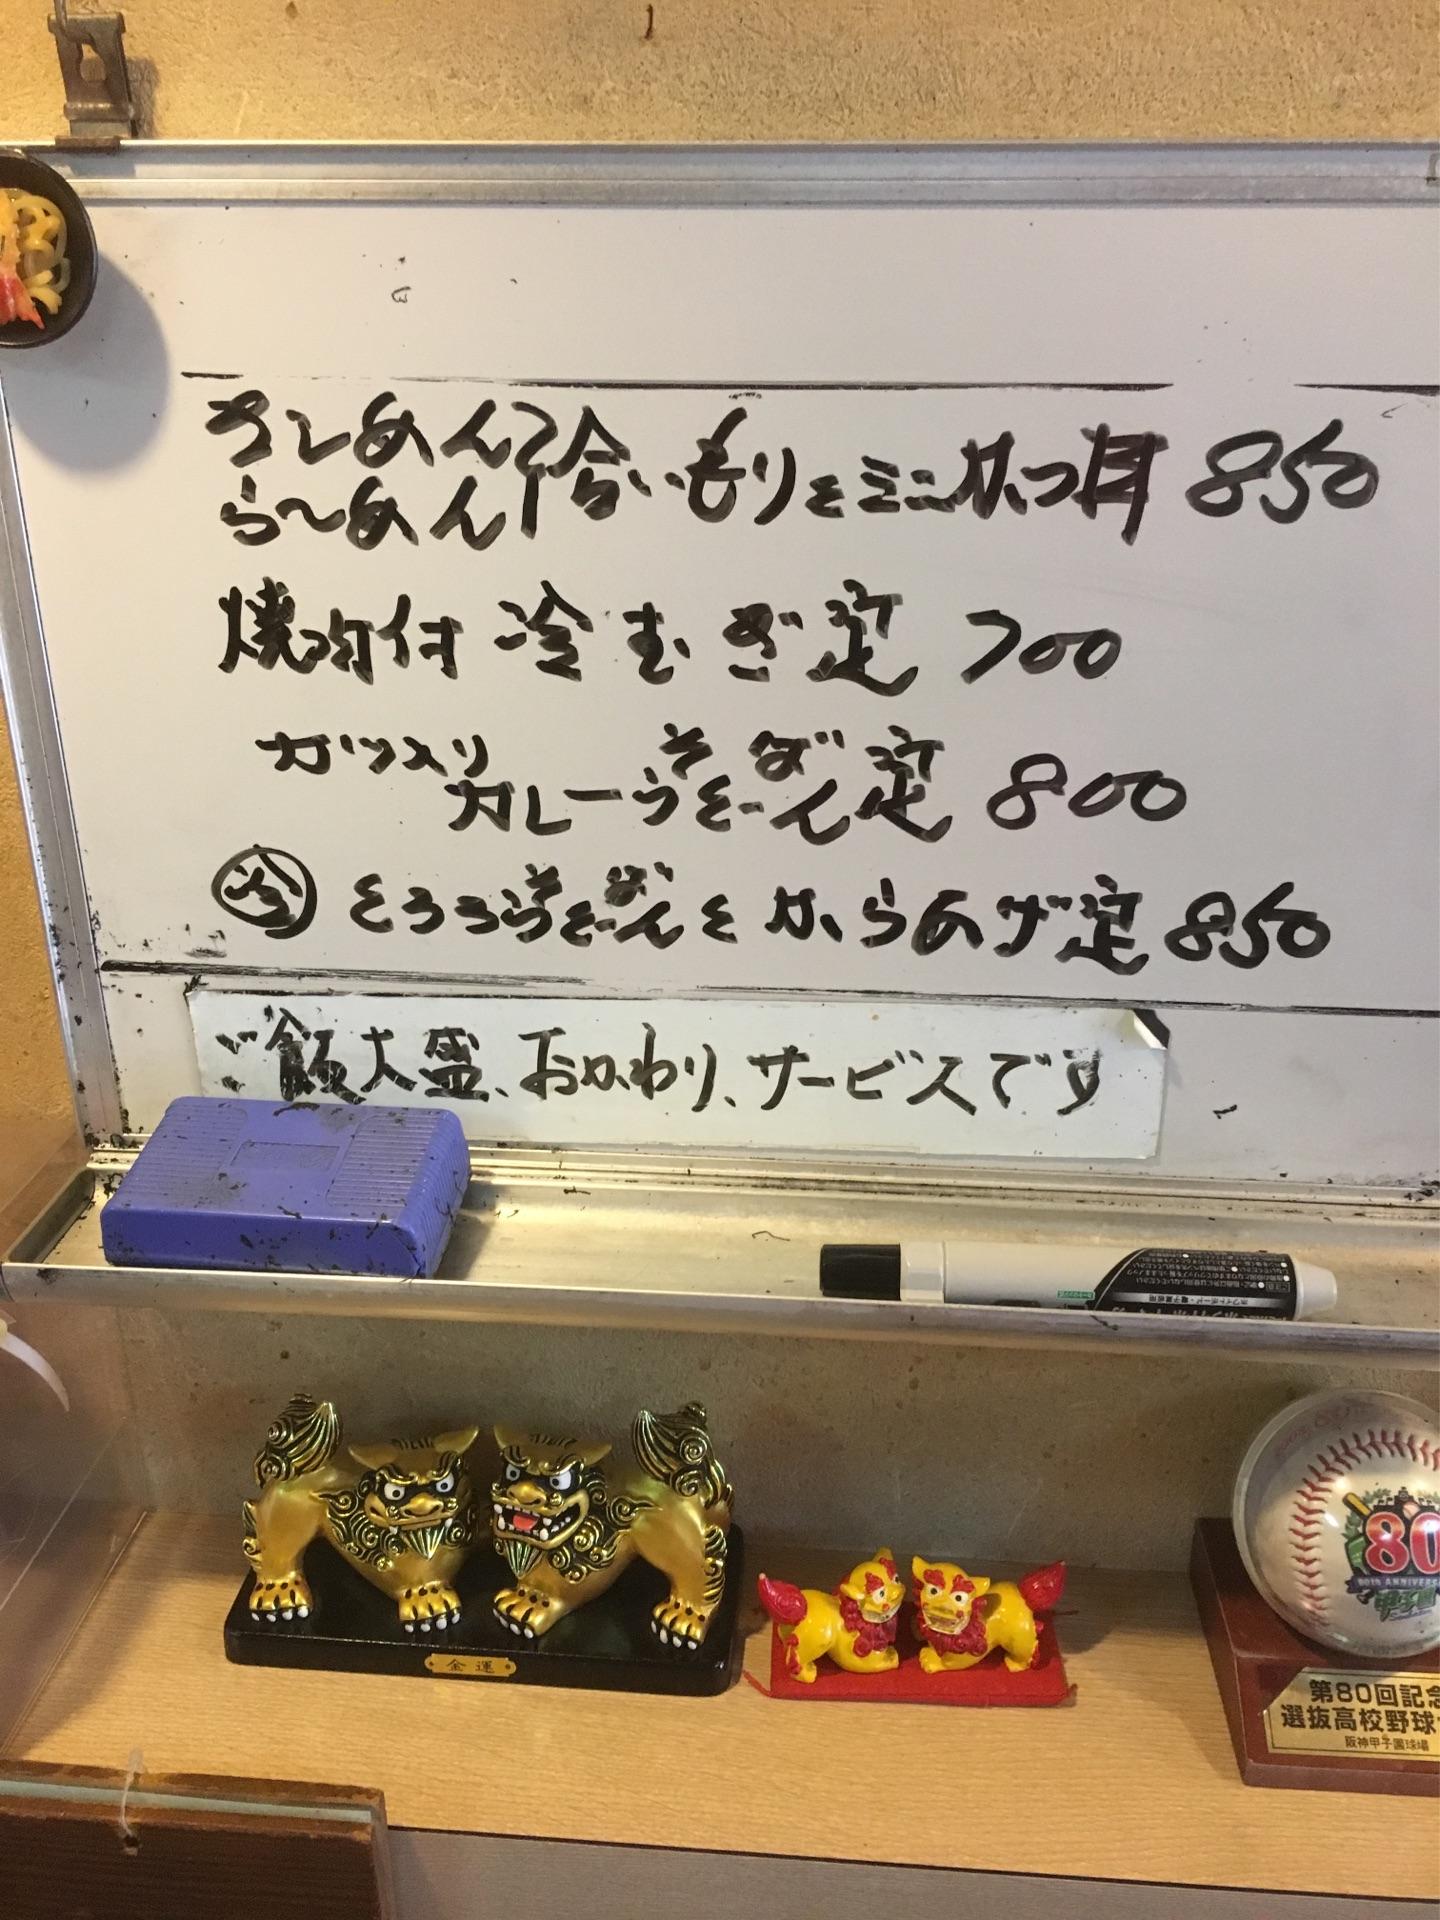 きしめん
らーめん
合いもりとミニかつ丼 850
焼肉付 冷 むぎ定 700
カツ入り
カレーうどん定 800
そば
冷 とろろうどんとからあげ定 850
そば
ご飯大盛、おかわり、サービスです
金運
80
80TH ANNIVERS
甲子園
第80回記念
選抜高校野球
阪神甲子園球場